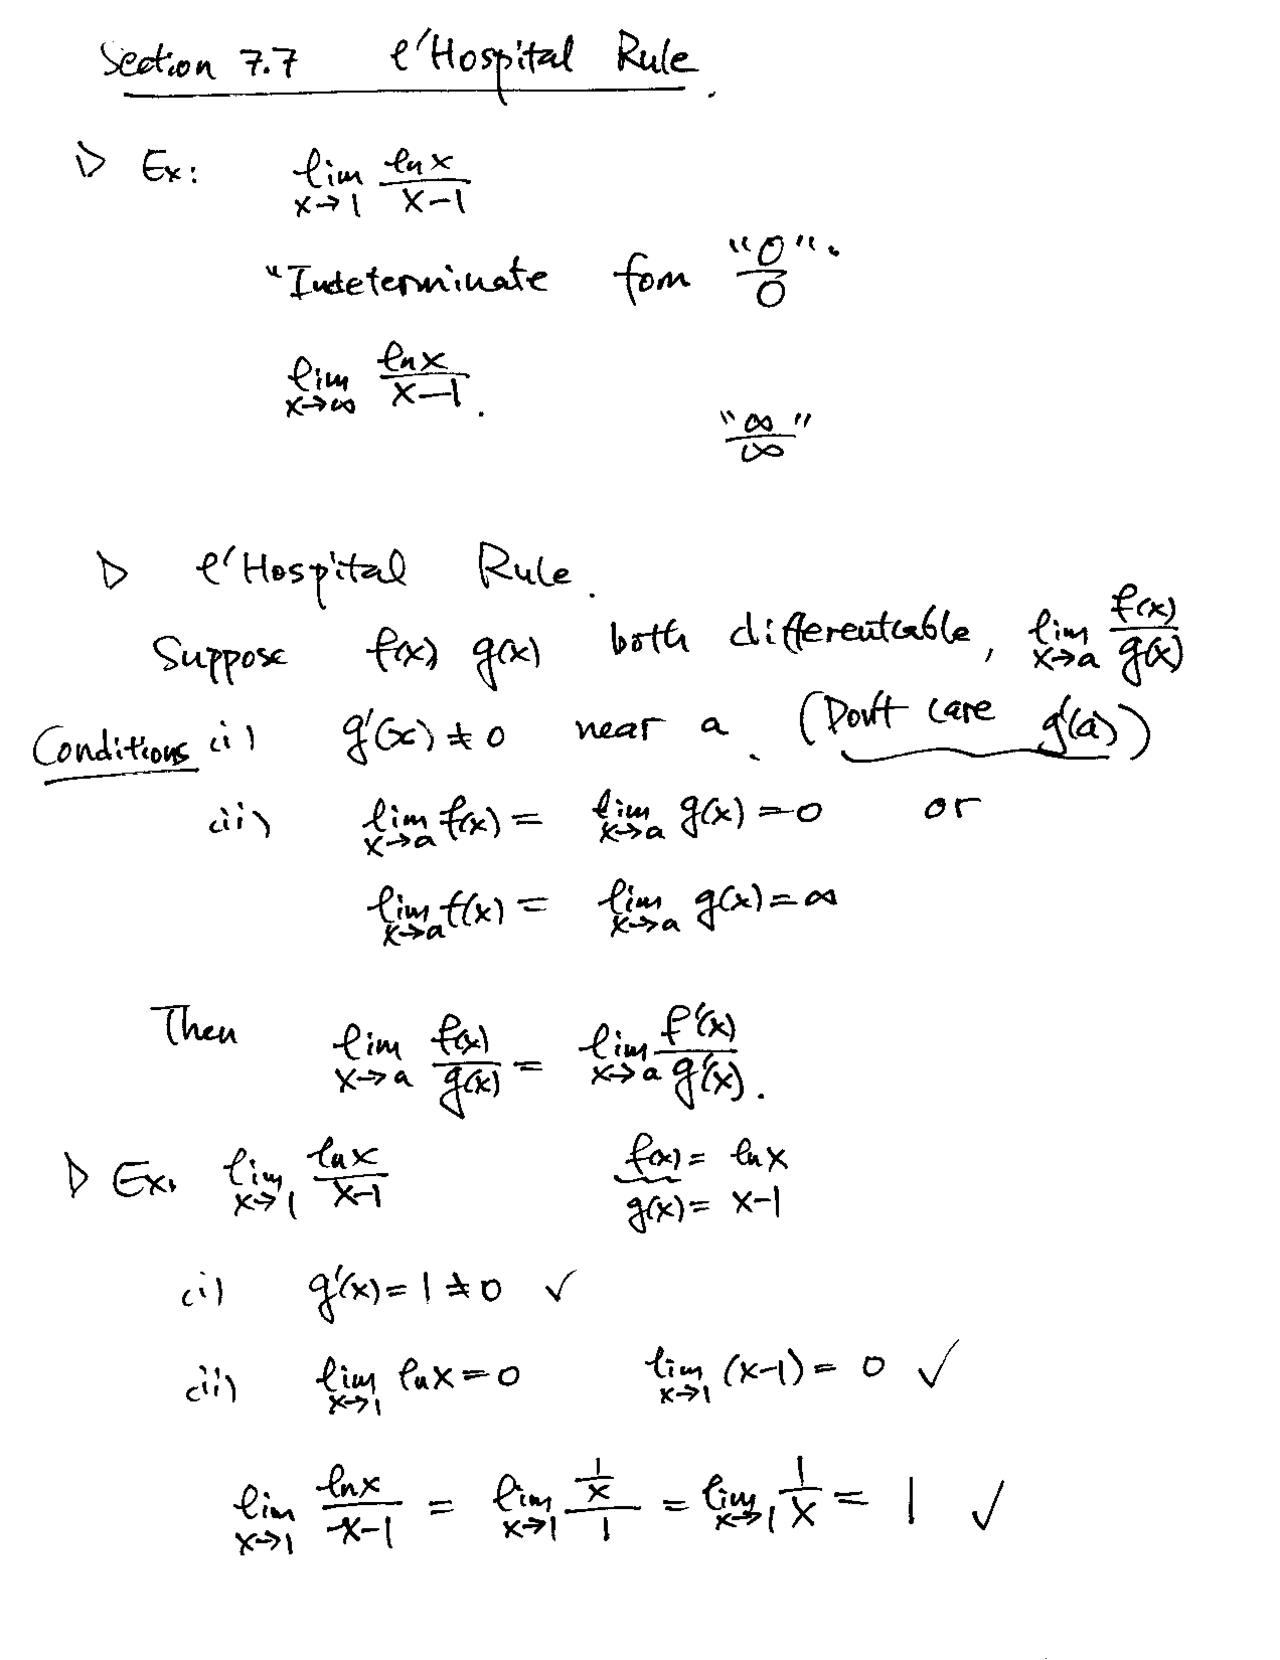 Section 7.7 l'Hospital Rule.
▷ Ex: lim_{x→1} ln x / (x-1)
"Indeterminate fom "0/0".
lim_{x→∞} ln x / (x-1).
"∞/∞"
▷ l'Hospital Rule.
Suppose f(x) g(x) both differentiable, lim_{x→a} f(x)/g(x)
Conditions (i) g'(x) ≠ 0 near a. (Don't care g'(a))
(ii) lim_{x→a} f(x) = lim_{x→a} g(x) = 0 or
lim_{x→a} f(x) = lim_{x→a} g(x) = ∞
Then lim_{x→a} f(x)/g(x) = lim_{x→a} f'(x)/g'(x).
▷ Ex. lim_{x→1} ln x / (x-1) f(x) = ln x
g(x) = x-1
(i) g'(x) = 1 ≠ 0 ✓
(ii) lim_{x→1} ln x = 0 lim_{x→1} (x-1) = 0 ✓
lim_{x→1} ln x / (x-1) = lim_{x→1} (1/x)/1 = lim_{x→1} 1/x = 1 ✓